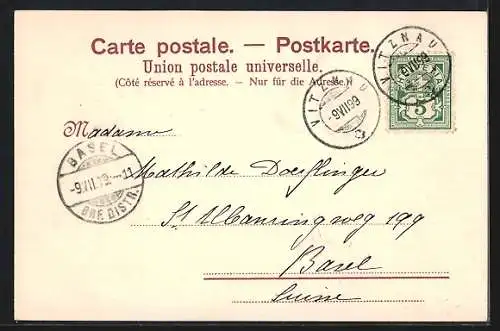 Carte postale. — Postkarte.
Union postale universelle.
(Côté réservé à l'adresse. — Nur für die Adresse.)
VITZNAU
9VII99
VITZNAU
-9VII99
5
Madame
BASEL
BRF. DISTR.
Mathilde Doeflinger
St Albanringweg 199
Basel
Suisse